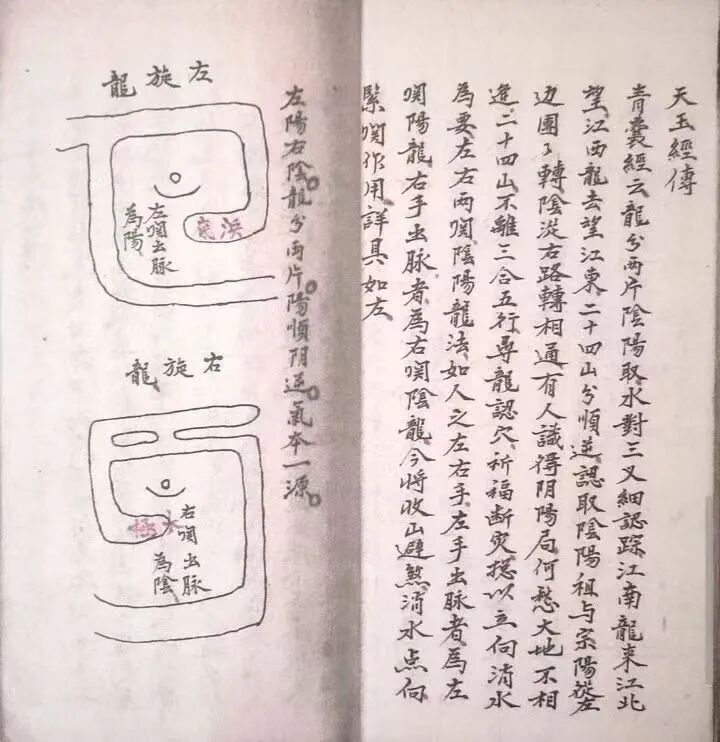 天玉經傳
青囊經云龍分兩片陰陽取水對三叉細認踪江南龍來江北
望江西龍去望江東二十四山分順逆認取陰陽祖与宗陽從左
边團々轉陰從右路轉相通有人識得阴陽局何愁大地不相
逢二十四山不離三合五行尋龍認穴祈福断灾捴以立向消水
為要左右兩関陰陽龍法如人之左右手左手出脉者為左
関陽龍右手出脉者為右関陰龍今將收山避煞消水点向
緊関作用詳具如左
左陽右陰。龍分兩片。陽順阴逆。氣本一源。
左旋龍
浜底
左関出脉
為陽
右旋龍
水極
右関出脉
為陰